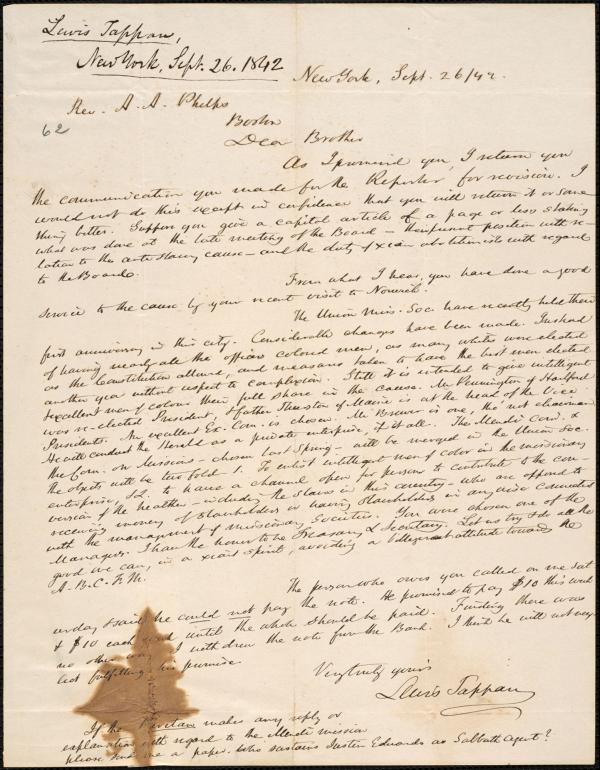 Lewis Tappan,
New York, Sept. 26. 1842
New York, Sept. 26/42.
Rev. A. A. Phelps
Boston
62
Dear Brother
As I promised you, I return you
the communication you made for the Reporter for revision. I
would not do this except in confidence that you will return it or some
thing better. Suppose you give a capital article of a page or less stating
what was done at the late meeting of the Board – their present position with re-
lation to the anti slavery cause – and the duty of xian abolitionists with regard
to the Board.
From what I hear, you have done a good
service to the cause by your recent visit to Norwich.
The Union Miss. Soc. have recently held their
first anniversary in this city. Considerable changes have been made. Instead
of having nearly all the officers colored men, as many whites were elected
as the Constitution allowed, and measures taken to have the best men elected
another year without respect to complexion. Still it is intended to give intelligent
& excellent men of colour their full share in the cause. Mr Pennington of Hartford
was re-elected President, & father Thurston of Maine is at the head of the Vice
Presidents. An excellent Ex. Com. is chosen. Mr Brewer is one, tho' not chairman
He will conduct the Herald as a private enterprise, if at all. The Mendi Com. &
the Com. on Missions – chosen last Spring – will be merged in the Union Soc.
The objects will be two fold 1. To enlist intelligent men of color in the missionary
enterprise, & 2. to have a channel open for persons to contribute to the con-
version of the heathen – including the slaves in this country – who are opposed to
receiving money of slaveholders or having slaveholders in any wise connected
with the management of missionary Societies. You were chosen one of the
Managers. I have the honor to be Treasurer & Secretary. Let us try & do all the
good we can, in a xian spirit, avoiding a belligerent attitude towards the
A. B. C. F. M.
The person who owes you called on me Sat
urday & said he could not pay the note. He promised to pay $10 this week
& $10 each week until the whole should be paid. Finding there was
no other way, I withdrew the note from the Bank. I think he will not very
fulfilling his promise.
Very truly yours
Lewis Tappan
If the Puritan makes any reply or
explanation with regard to the Mendi mission
please send me a paper. Who sustains Justin Edwards as Sabbath agent?